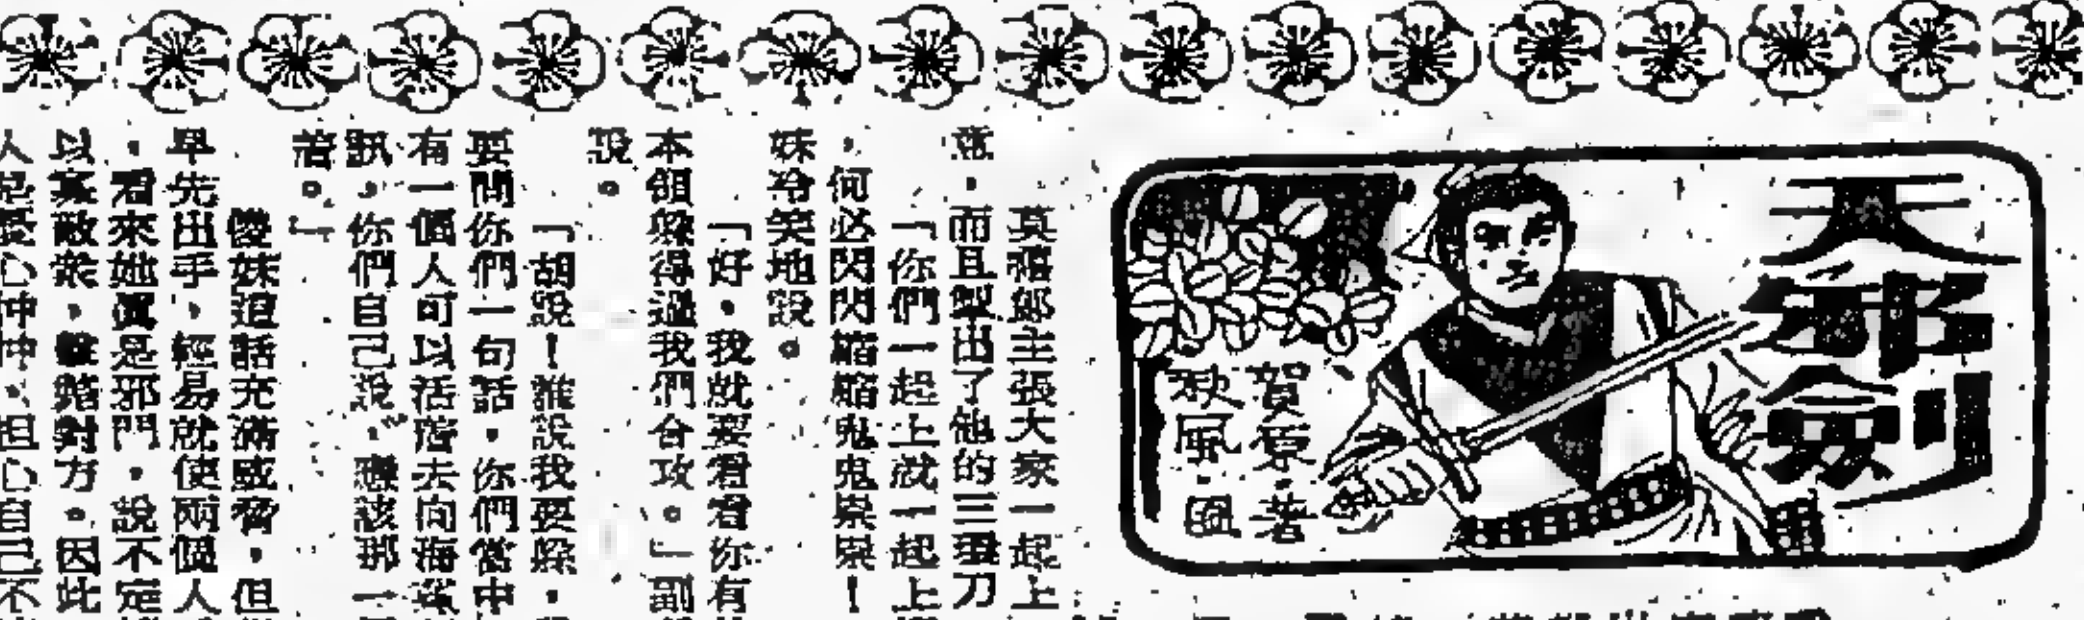 天邪劍
賀原·著
秋風·圖
莫禧鄉主張大家一起上
意,而且掣出了他的三環刀
「你們一起上就一起上
,何必閃閃縮縮鬼鬼祟祟!
妹冷笑地說。
「好,我就要看看你有
本領躲得過我們合攻。」副
說。
「胡說!誰說我要躲,
要問你們一句話,你們當中
有一個人可以活着去向海
訊,你們自己說,應該那一
着。」
傻妹這話充滿威脅,但
早先出手,輕易就使兩個人
,看來她真是邪門,說不定
以寡敵衆,雖勝對方。因此
人是憂心忡忡,担心自己不